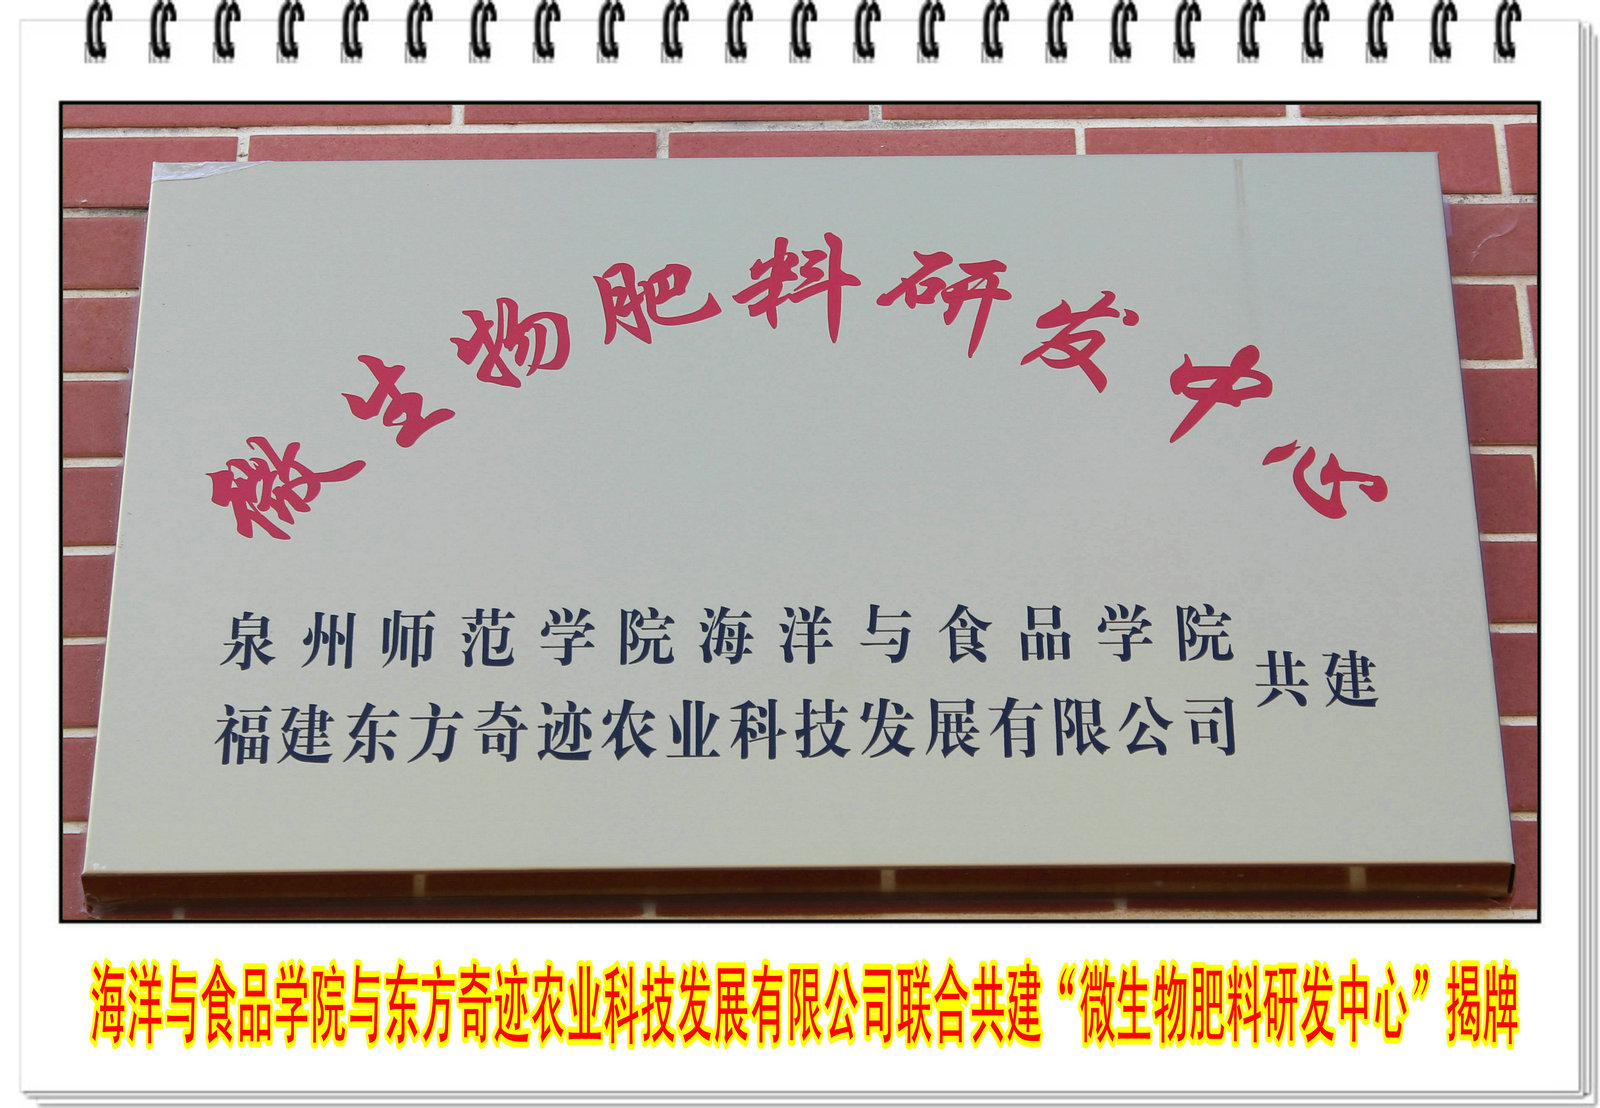 微生物肥料研发中心
泉州师范学院海洋与食品学院
福建东方奇迹农业科技发展有限公司
共建
海洋与食品学院与东方奇迹农业科技发展有限公司联合共建“微生物肥料研发中心”揭牌